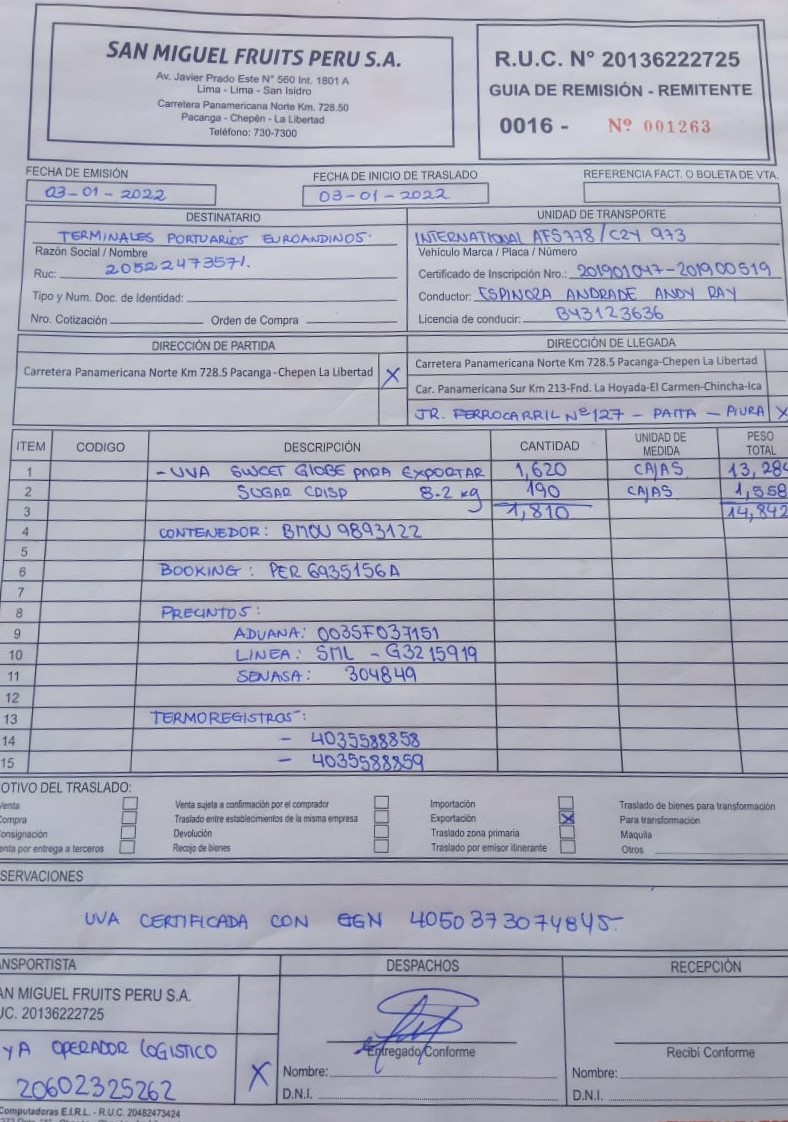 SAN MIGUEL FRUITS PERU S.A.
Av. Javier Prado Este N° 560 Int. 1801 A
Lima - Lima - San Isidro
Carretera Panamericana Norte Km. 728.50
Pacanga - Chepén - La Libertad
Teléfono: 730-7300
R.U.C. N° 20136222725
GUIA DE REMISIÓN - REMITENTE
0016 - Nº 001263
FECHA DE EMISIÓN
03-01-2022
FECHA DE INICIO DE TRASLADO
03-01-2022
REFERENCIA FACT. O BOLETA DE VTA.
DESTINATARIO
TERMINALES PORTUARIOS EUROANDINOS.
Razón Social / Nombre
Ruc: 20522473571.
Tipo y Num. Doc. de Identidad:
Nro. Cotización Orden de Compra
UNIDAD DE TRANSPORTE
INTERNATIONAL AFS778/C2Y 973
Vehículo Marca / Placa / Número
Certificado de Inscripción Nro.: 201901047-201900519
Conductor: ESPINOZA ANDRADE ANDY RAY
Licencia de conducir: B43123636
DIRECCIÓN DE PARTIDA
Carretera Panamericana Norte Km 728.5 Pacanga-Chepen La Libertad X
DIRECCIÓN DE LLEGADA
Carretera Panamericana Norte Km 728.5 Pacanga-Chepen La Libertad
Car. Panamericana Sur Km 213-Fnd. La Hoyada-El Carmen-Chincha-Ica
JR. FERROCARRIL Nº127 - PAITA - PIURA X
ITEM CODIGO DESCRIPCIÓN CANTIDAD UNIDAD DE MEDIDA PESO TOTAL
1 - UVA SWEET GLOBE PARA EXPORTAR 1,620 CAJAS 13,284
2 SUGAR CRISP 8.2 kg 190 CAJAS 1,558
3 1,810 14,842
4 CONTENEDOR: BMOU 9893122
5
6 BOOKING: PER 6935156A
7
8 PRECINTOS:
9 ADUANA: 0035F037151
10 LINEA: SML - G3215919
11 SENASA: 304849
12
13 TERMOREGISTROS:
14 - 4035588858
15 - 4035588859
OTIVO DEL TRASLADO:
Venta sujeta a confirmación por el comprador Importación Traslado de bienes para transformación
ompra Traslado entre establecimientos de la misma empresa Exportación X Para transformación
onsignación Devolución Traslado zona primaria Maquila
enta por entrega a terceros Recojo de bienes Traslado por emisor itinerante Otros
SERVACIONES
UVA CERTIFICADA CON GGN 4050373074845
ANSPORTISTA
AN MIGUEL FRUITS PERU S.A.
UC. 20136222725
YA OPERADOR LOGISTICO
20602325262 X
DESPACHOS
Entregado Conforme
Nombre:
D.N.I.
RECEPCIÓN
Recibí Conforme
Nombre:
D.N.I.
Computadoras E.I.R.L. - R.U.C. 20482473424